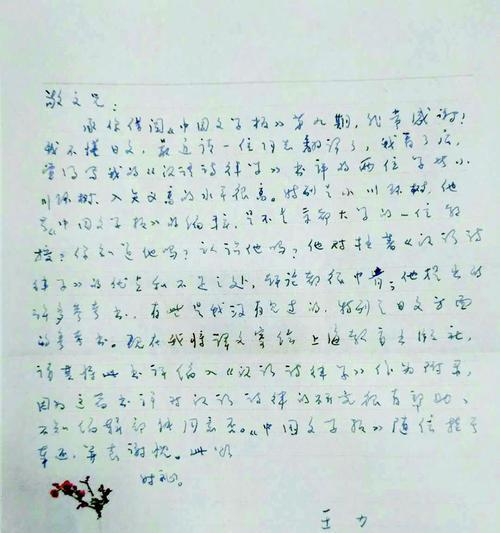 敬文兄：
承你借阅《中国文学报》第九期，非常感谢！
我不懂日文，最近请一位同志翻译了，我看了后，
觉得写我的《汉语诗律学》书评的两位学者小
川环树、入矢义高的水平很高。特别是小川环树，他
是《中国文学报》的编辑，是不是京都大学的一位教
授？你知道他吗？认识他吗？他对拙著《汉语诗
律学》的优点和不足之处，评论都很中肯；他提出的
许多参考书，有些是我没有见过的，特别是日文方面
的参考书。现在我将译文寄给上海教育出版社，
请其将此书评编入《汉语诗律学》作为附录，
因为这篇书评对汉语诗律的研究很有帮助，
不知编辑部能同意否。《中国文学报》随信挂号
奉还，并表谢忱。此致
时祉。
王力